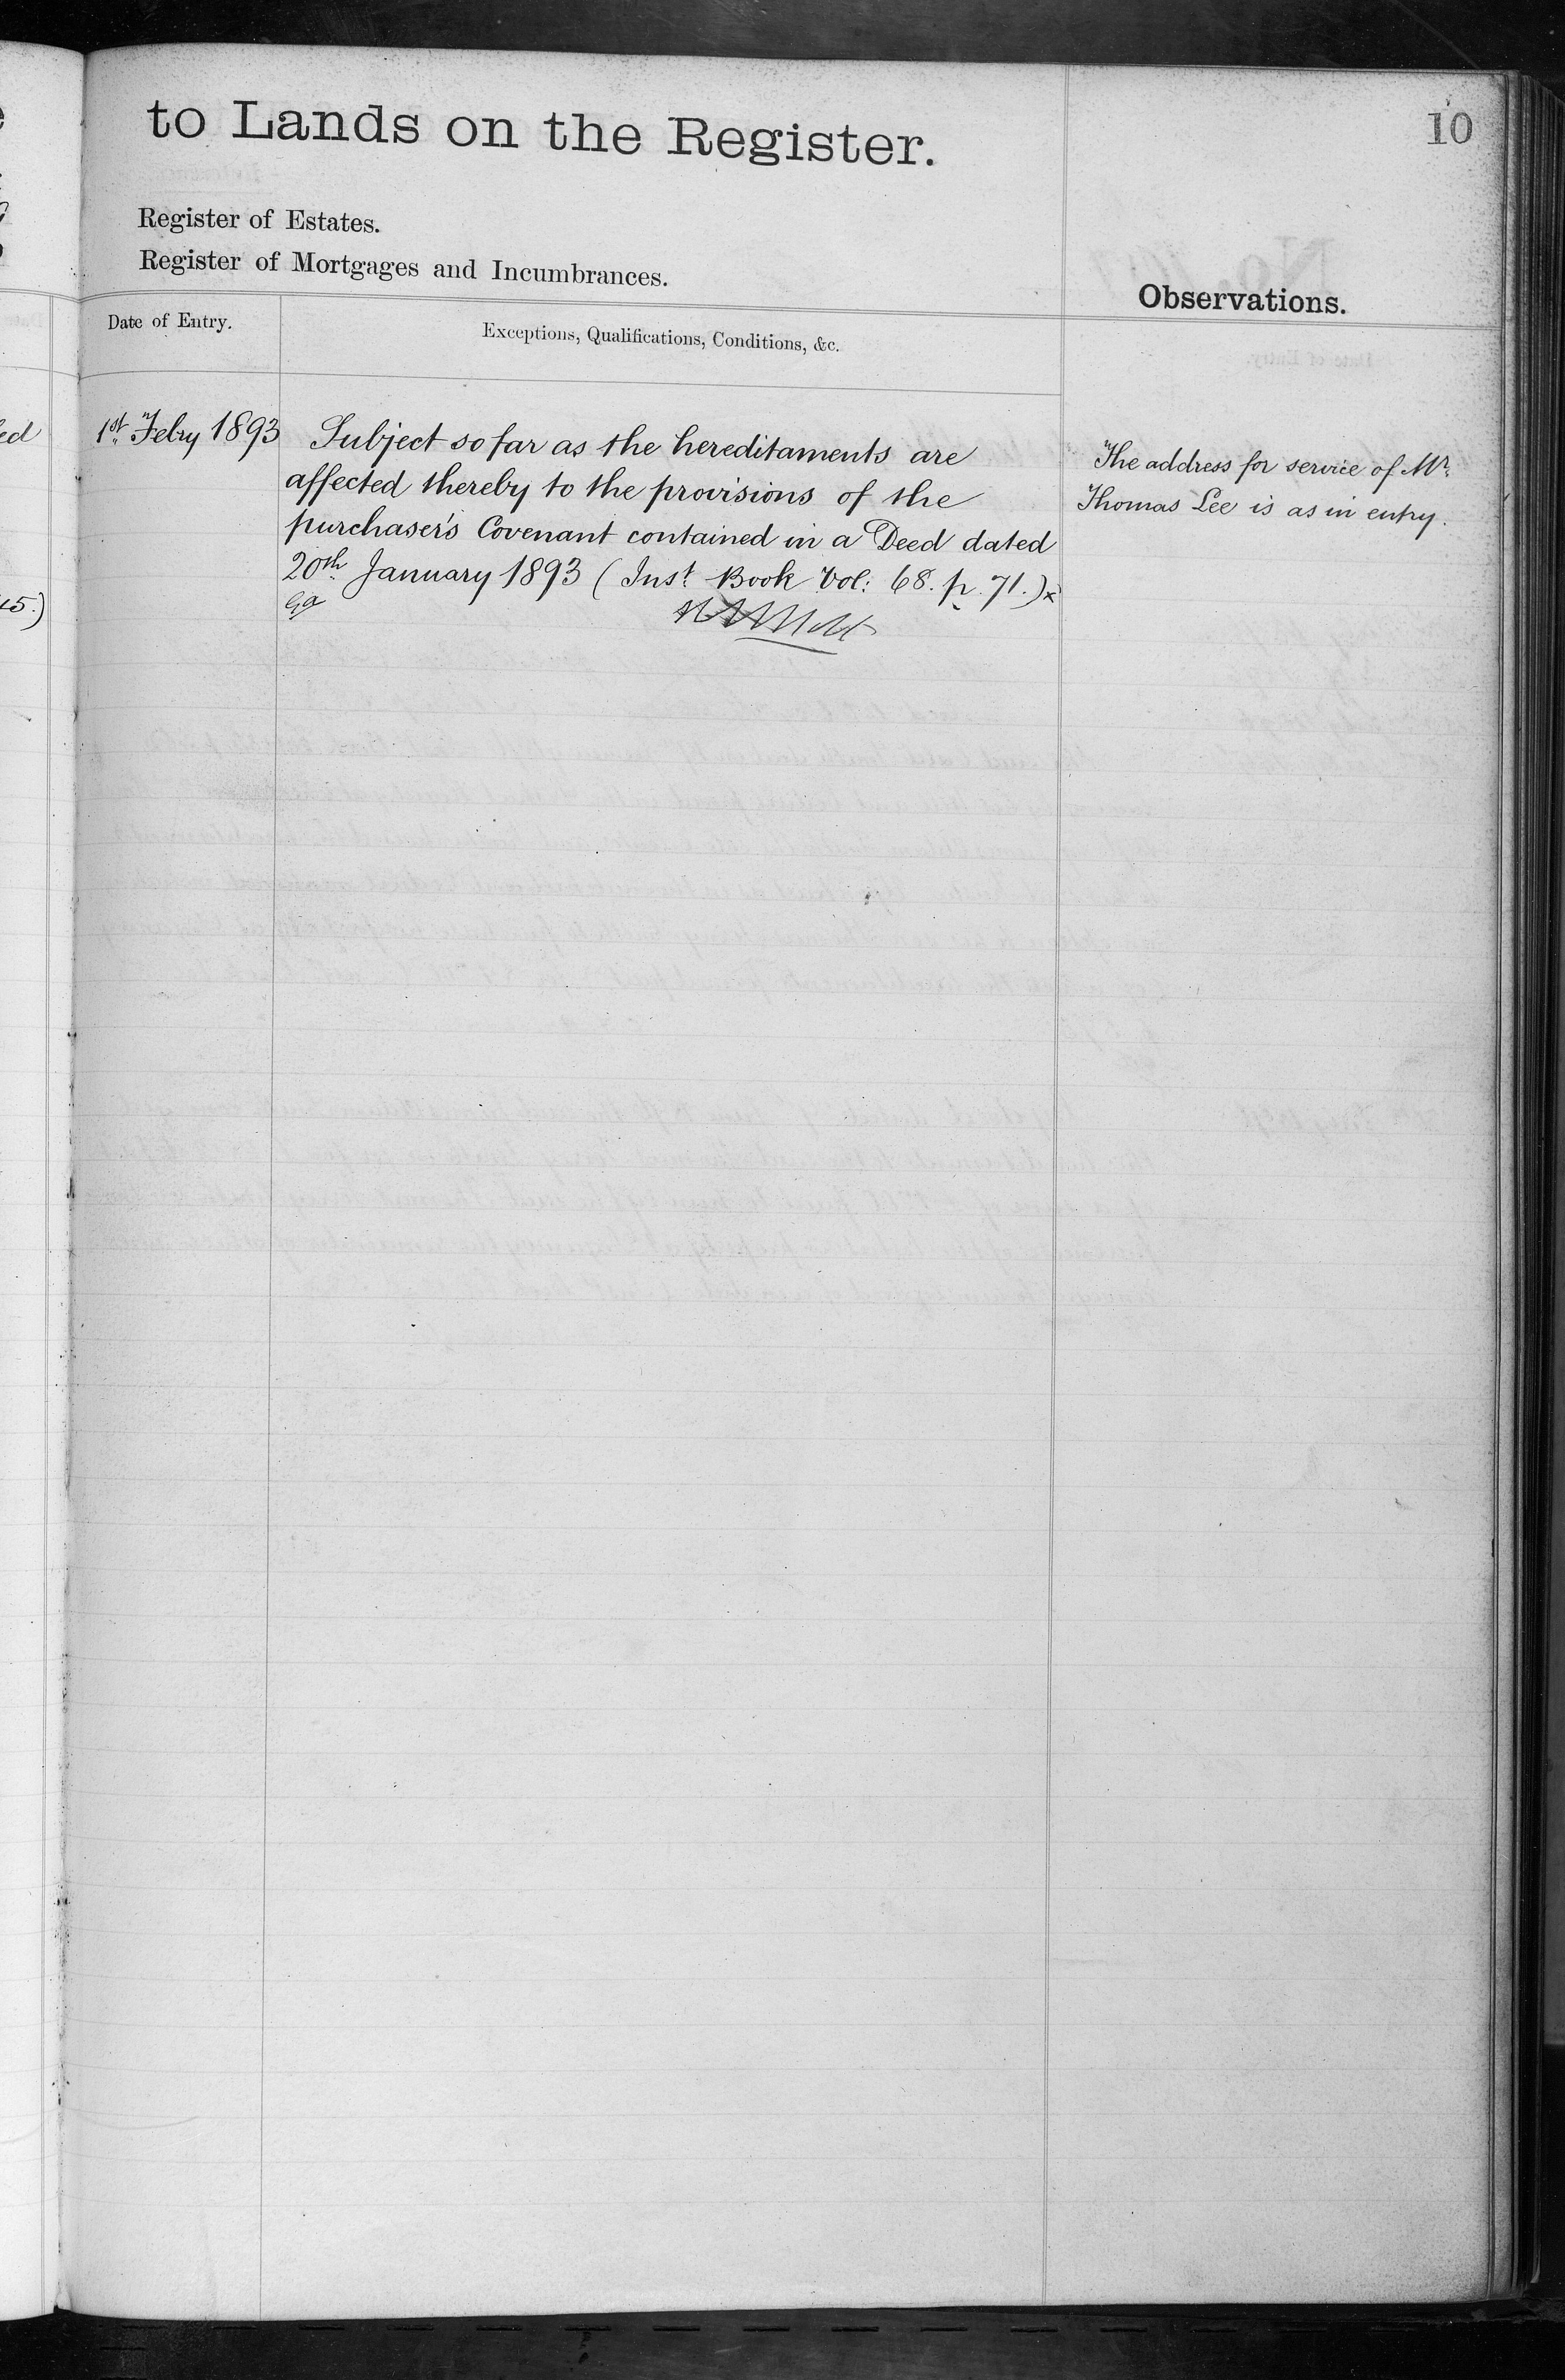 to Lands on the Register.
10
Register of Estates.
Register of Mortgages and Incumbrances.
Observations.
Date of Entry.
Exceptions, Qualifications, Conditions, &c.
1st Febry 1893
Subject so far as the hereditaments are
affected thereby to the provisions of the
purchaser's Covenant contained in a Deed dated
20th January 1893 (Inst Book Vol: 68. p. 71.)x
The address for service of Mr.
Thomas Lee is as in entry.
ed
45.)